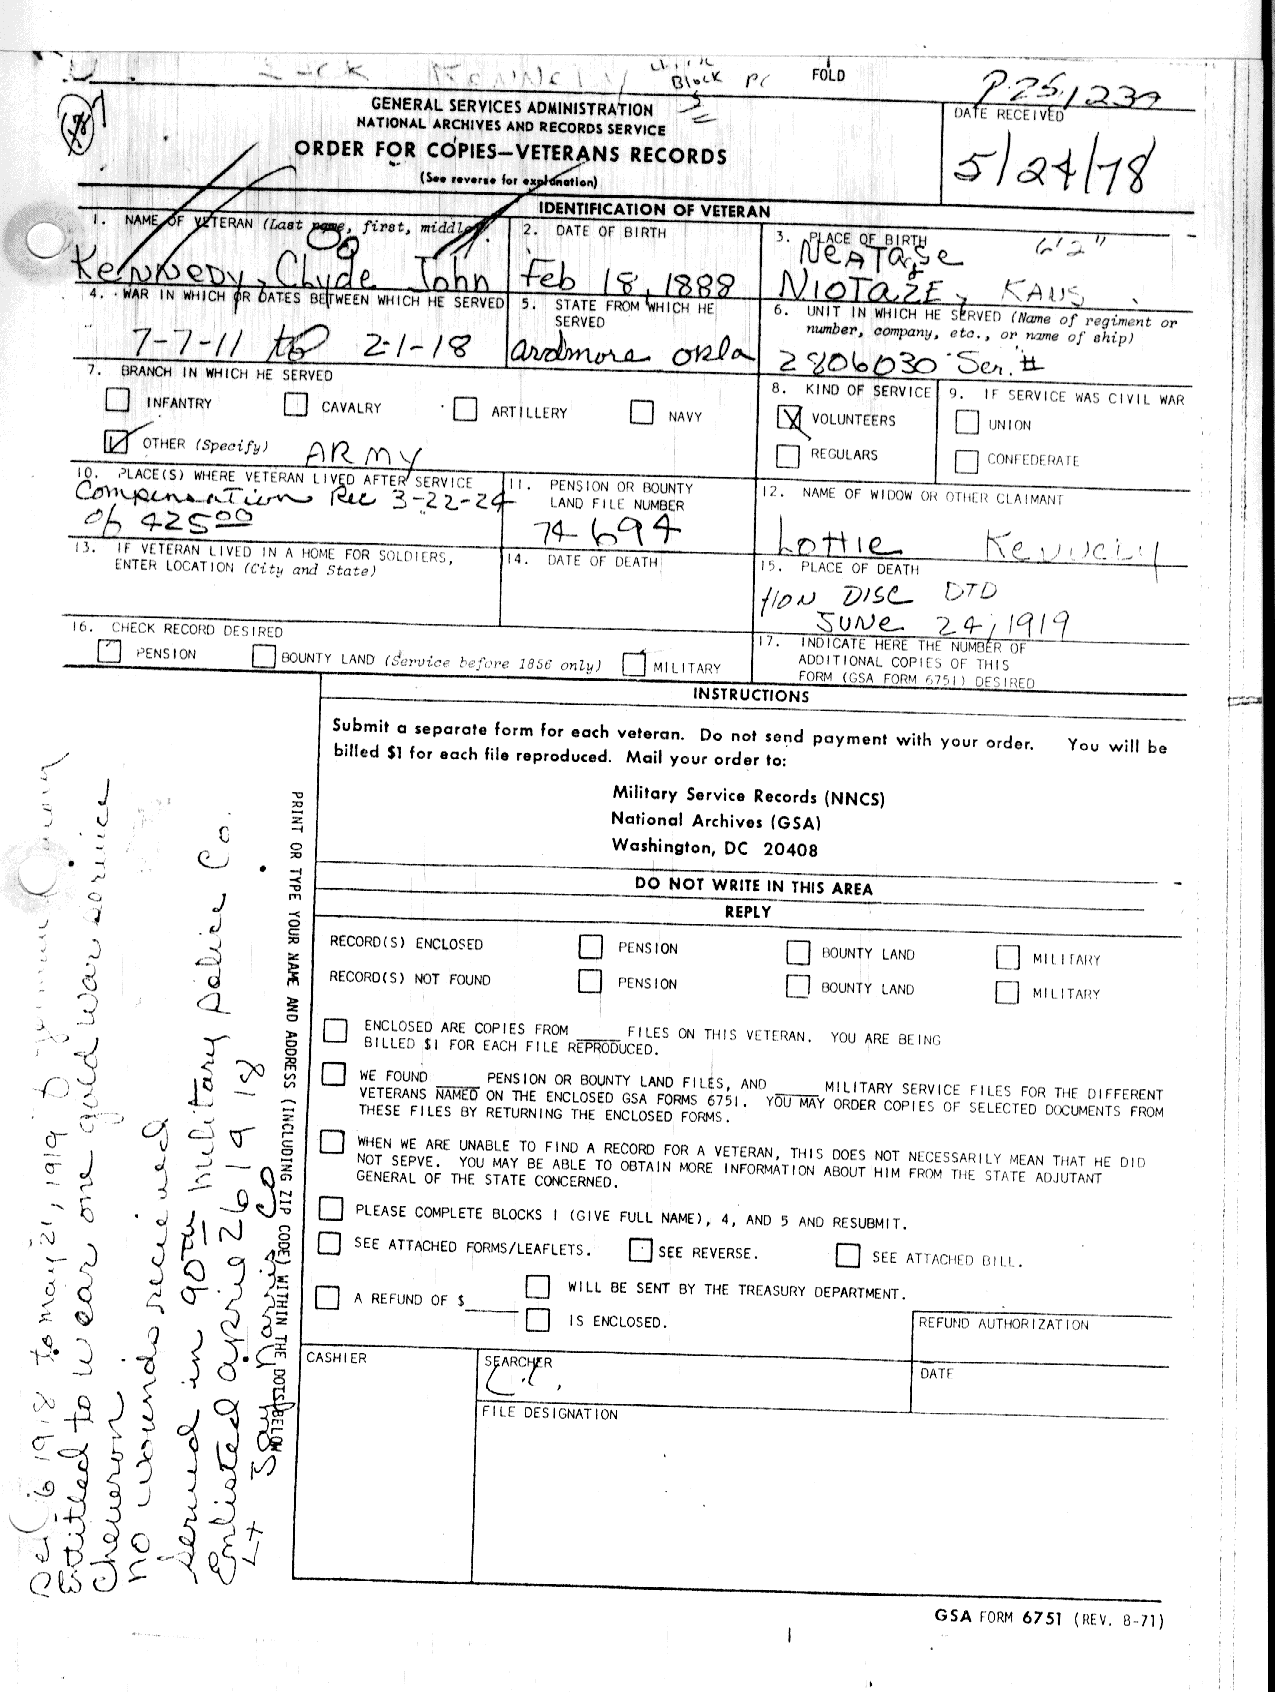 Block PC
FOLD
P251239
GENERAL SERVICES ADMINISTRATION
NATIONAL ARCHIVES AND RECORDS SERVICE
ORDER FOR COPIES—VETERANS RECORDS
(See reverse for explanation)
DATE RECEIVED
5/24/78
IDENTIFICATION OF VETERAN
1. NAME OF VETERAN (Last name, first, middle)
Kennedy, Clyde John
2. DATE OF BIRTH
Feb 18, 1888
3. PLACE OF BIRTH
6'2"
Neatase
NIOTAZE, KANS
4. WAR IN WHICH OR DATES BETWEEN WHICH HE SERVED
7-7-11 to 2-1-18
5. STATE FROM WHICH HE SERVED
ardmore okla
6. UNIT IN WHICH HE SERVED (Name of regiment or
number, company, etc., or name of ship)
2806030 Ser. #
7. BRANCH IN WHICH HE SERVED
INFANTRY
CAVALRY
ARTILLERY
NAVY
OTHER (Specify) ARMY
8. KIND OF SERVICE
VOLUNTEERS
REGULARS
9. IF SERVICE WAS CIVIL WAR
UNION
CONFEDERATE
10. PLACE(S) WHERE VETERAN LIVED AFTER SERVICE
Compensation Rec 3-22-24
of 425 00
11. PENSION OR BOUNTY
LAND FILE NUMBER
74694
12. NAME OF WIDOW OR OTHER CLAIMANT
Lottie Kennedy
13. IF VETERAN LIVED IN A HOME FOR SOLDIERS,
ENTER LOCATION (City and State)
14. DATE OF DEATH
15. PLACE OF DEATH
HON DISC DTD
JUNE 24, 1919
16. CHECK RECORD DESIRED
PENSION
BOUNTY LAND (Service before 1856 only)
MILITARY
17. INDICATE HERE THE NUMBER OF
ADDITIONAL COPIES OF THIS
FORM (GSA FORM 6751) DESIRED
INSTRUCTIONS
Submit a separate form for each veteran. Do not send payment with your order. You will be
billed $1 for each file reproduced. Mail your order to:
Military Service Records (NNCS)
National Archives (GSA)
Washington, DC 20408
DO NOT WRITE IN THIS AREA
REPLY
RECORD(S) ENCLOSED PENSION BOUNTY LAND MILITARY
RECORD(S) NOT FOUND PENSION BOUNTY LAND MILITARY
ENCLOSED ARE COPIES FROM ____ FILES ON THIS VETERAN. YOU ARE BEING
BILLED $1 FOR EACH FILE REPRODUCED.
WE FOUND ____ PENSION OR BOUNTY LAND FILES, AND ____ MILITARY SERVICE FILES FOR THE DIFFERENT
VETERANS NAMED ON THE ENCLOSED GSA FORMS 6751. YOU MAY ORDER COPIES OF SELECTED DOCUMENTS FROM
THESE FILES BY RETURNING THE ENCLOSED FORMS.
WHEN WE ARE UNABLE TO FIND A RECORD FOR A VETERAN, THIS DOES NOT NECESSARILY MEAN THAT HE DID
NOT SERVE. YOU MAY BE ABLE TO OBTAIN MORE INFORMATION ABOUT HIM FROM THE STATE ADJUTANT
GENERAL OF THE STATE CONCERNED.
PLEASE COMPLETE BLOCKS 1 (GIVE FULL NAME), 4, AND 5 AND RESUBMIT.
SEE ATTACHED FORMS/LEAFLETS.
SEE REVERSE.
SEE ATTACHED BILL.
A REFUND OF $____
WILL BE SENT BY THE TREASURY DEPARTMENT.
IS ENCLOSED.
REFUND AUTHORIZATION
CASHIER
SEARCHER
DATE
FILE DESIGNATION
PRINT OR TYPE YOUR NAME AND ADDRESS (INCLUDING ZIP CODE) WITHIN THE DOTS BELOW
6 1918 to may 21, 1919
Entitled to wear one gold war service
Cheveron
no wounds recieved
served in 90th military police Co.
Enlisted april 26 19 18
Lt Jay Narris Co
GSA FORM 6751 (REV. 8-71)